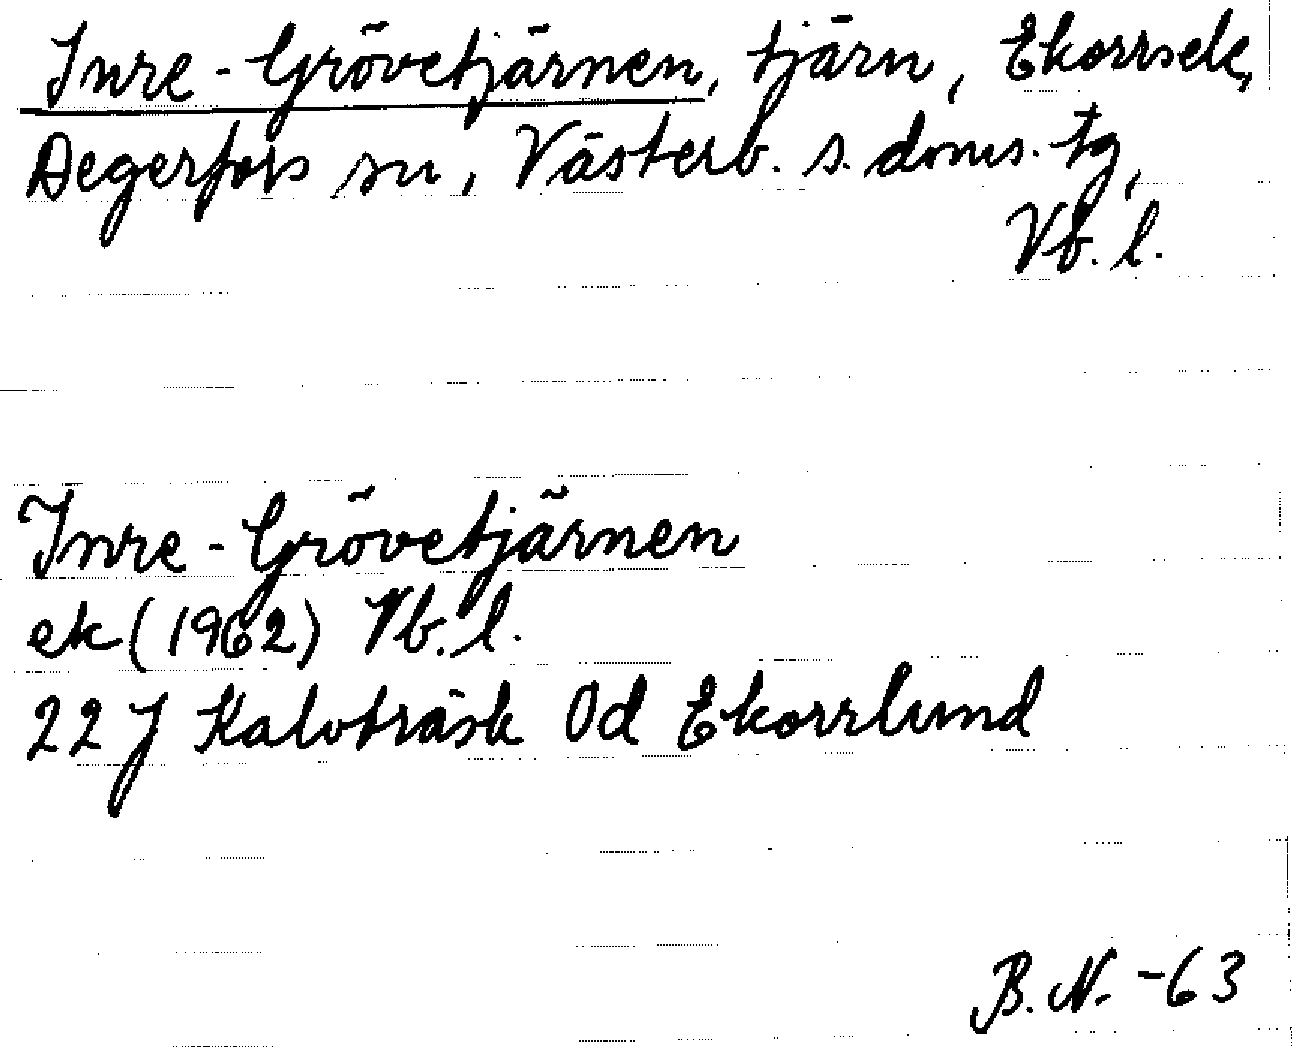 Inre-Grövetjärnen, tjärn, Ekorrsele,
Degerfors sn, Västerb. s. doms. tg,
Vb. l.
Inre-Grövetjärnen
ek (1962) Vb. l.
22 J Kalvträsk 0d Ekorrlund
B. N. -63